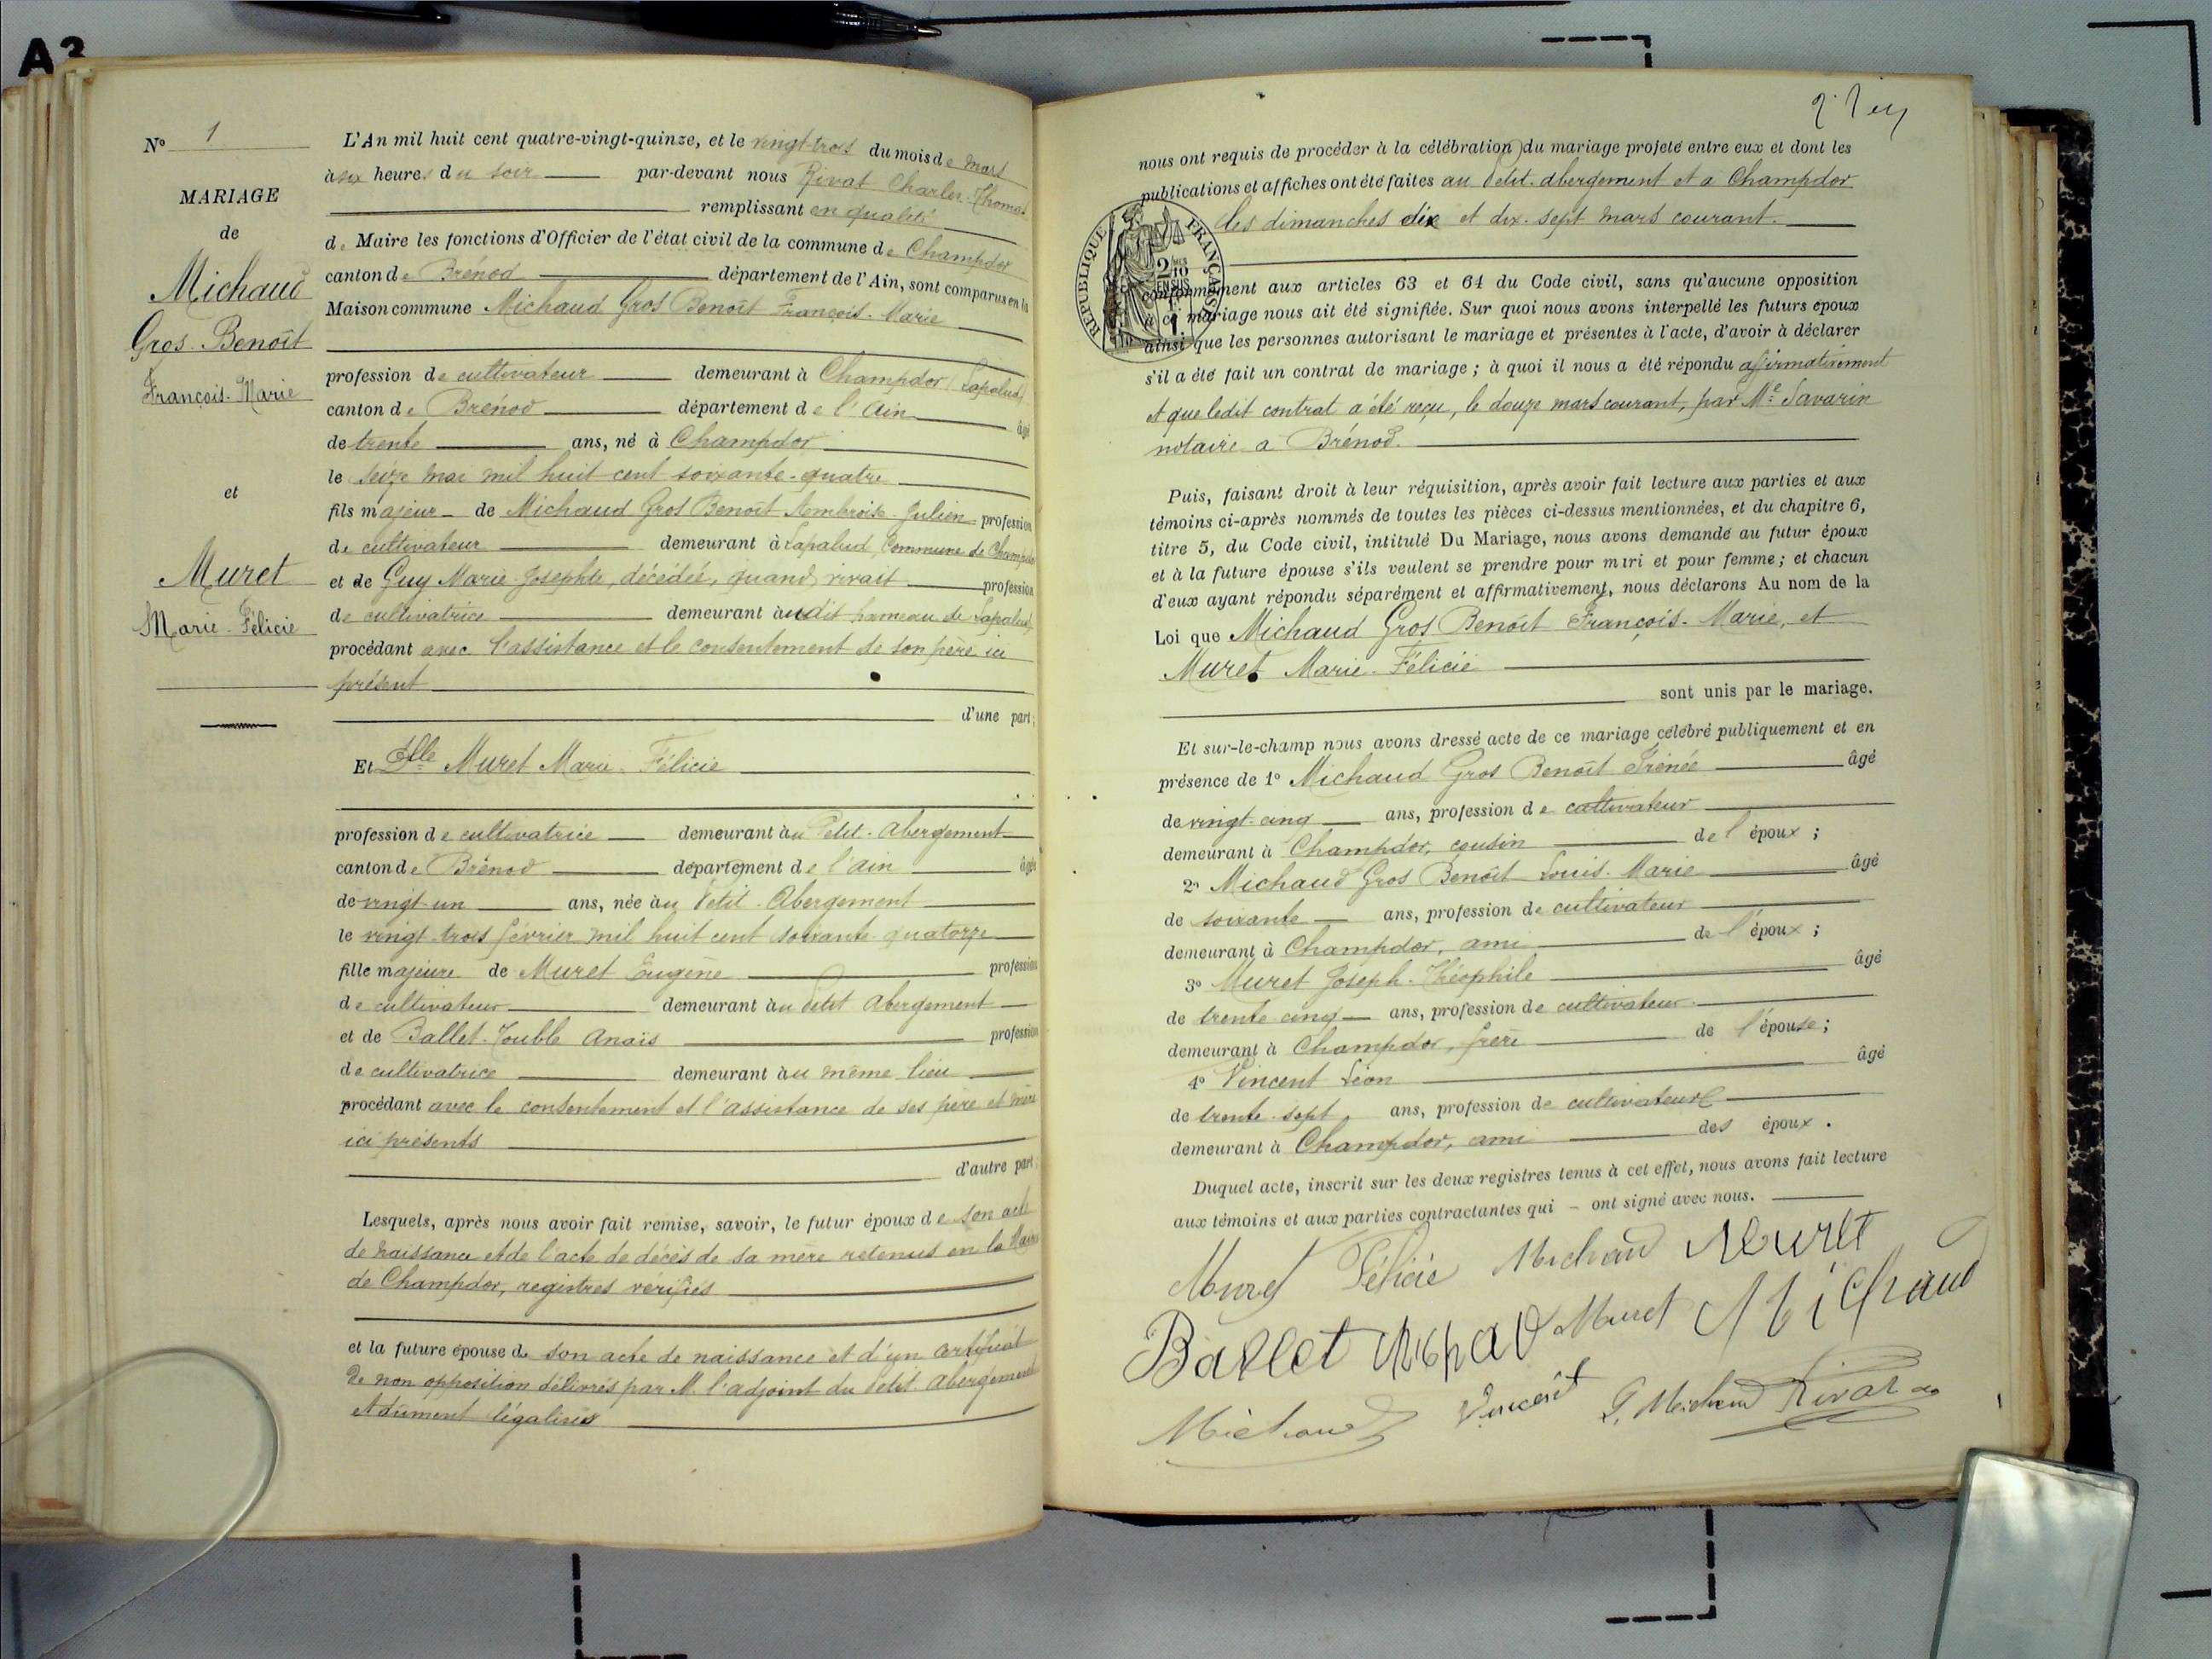 A3
N° 1
MARIAGE
de
Michaud
Gros-Benoît
François-Marie
et
Muret
Marie-Félicie
L'An mil huit cent quatre-vingt-quinze, et le vingt-trois du mois de mars
à six heures du soir par-devant nous Rivat Charles-Thomas
remplissant en qualité
de Maire les fonctions d'Officier de l'état civil de la commune de Champdor
canton de Brénod département de l'Ain, sont comparus en la
Maison commune Michaud Gros Benoît François-Marie
profession de cultivateur demeurant à Champdor (Lapalud)
canton de Brénod département de l'Ain âgé
de trente ans, né à Champdor
le seize mai mil huit cent soixante-quatre
fils majeur de Michaud Gros Benoît Ambroise Julien profession
de cultivateur demeurant à Lapalud, Commune de Champdor
et de Guy Marie-Josephte, décédée, quand vivait profession
de cultivatrice demeurant audit hameau de Lapalud,
procédant avec l'assistance et le consentement de son père ici
présent
d'une part;
Et Dlle Muret Marie-Félicie
profession de cultivatrice demeurant au Petit-Abergement
canton de Brénod département de l'Ain âgée
de vingt-un ans, née au Petit-Abergement
le vingt-trois février mil huit cent soixante-quatorze
fille majeure de Muret Eugène profession
de cultivateur demeurant au Petit Abergement
et de Ballet-Touble Anaïs profession
de cultivatrice demeurant au même lieu
procédant avec le consentement et l'assistance de ses père et mère
ici présents
d'autre part;
Lesquels, après nous avoir fait remise, savoir, le futur époux de son acte
de naissance et de l'acte de décès de sa mère retenus en la Mairie
de Champdor, registres vérifiés
et la future épouse de son acte de naissance et d'un certificat
de non opposition délivrés par M. l'adjoint du Petit-Abergement
et dûment légalisés
nous ont requis de procéder à la célébration du mariage projeté entre eux et dont les
publications et affiches ont été faites au Petit-Abergement et à Champdor
les dimanches dix et dix-sept mars courant.
RÉPUBLIQUE FRANÇAISE
2/10 EN SUS
conformément aux articles 63 et 64 du Code civil, sans qu'aucune opposition
à ce mariage nous ait été signifiée. Sur quoi nous avons interpellé les futurs époux
ainsi que les personnes autorisant le mariage et présentes à l'acte, d'avoir à déclarer
s'il a été fait un contrat de mariage; à quoi il nous a été répondu affirmativement
et que ledit contrat a été reçu, le douze mars courant, par Me Savarin
notaire à Brénod.
Puis, faisant droit à leur réquisition, après avoir fait lecture aux parties et aux
témoins ci-après nommés de toutes les pièces ci-dessus mentionnées, et du chapitre 6,
titre 5, du Code civil, intitulé Du Mariage, nous avons demandé au futur époux
et à la future épouse s'ils veulent se prendre pour mari et pour femme; et chacun
d'eux ayant répondu séparément et affirmativement, nous déclarons Au nom de la
Loi que Michaud Gros Benoît François-Marie, et
Muret Marie-Félicie
sont unis par le mariage.
Et sur-le-champ nous avons dressé acte de ce mariage célébré publiquement et en
présence de 1° Michaud Gros Benoît Irénée âgé
de vingt-cinq ans, profession de cultivateur
demeurant à Champdor, cousin de l'époux;
2° Michaud Gros Benoît Louis-Marie âgé
de soixante ans, profession de cultivateur
demeurant à Champdor, ami de l'époux;
3° Muret Joseph-Théophile âgé
de trente-cinq ans, profession de cultivateur
demeurant à Champdor, frère de l'épouse;
4° Vincent Léon âgé
de trente-sept ans, profession de cultivateur
demeurant à Champdor, ami des époux.
Duquel acte, inscrit sur les deux registres tenus à cet effet, nous avons fait lecture
aux témoins et aux parties contractantes qui – ont signé avec nous.
Muret Félicie Michaud Muret
Ballet Michaud Muret Michaud
Michaud Vincent Michaud Rivat